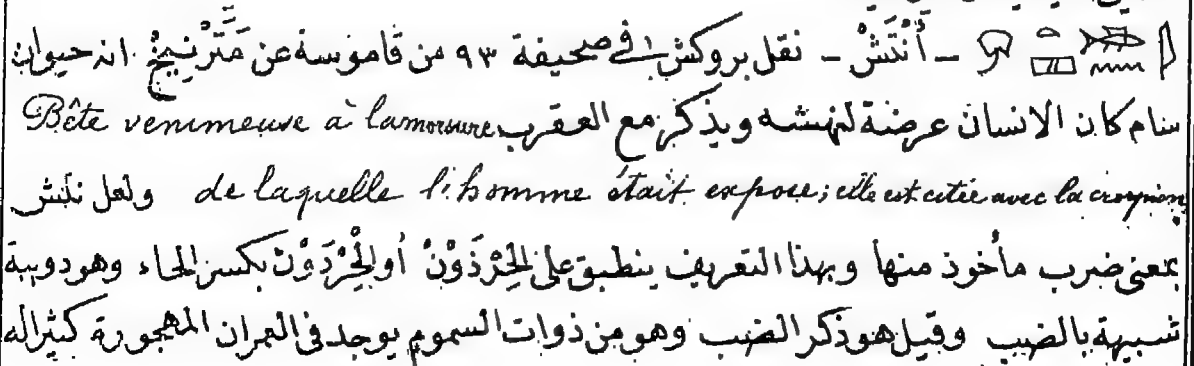 ـ أُنْتَشْ ـ نقل بروكش في صحيفة ٩٣ من قاموسة عن مَتَّرْنِيخْ انه حيوان
سام كان الانسان عرضة لنهشه ويذكر مع العقرب Bête venimeuse à la morsure
de laquelle l'homme était expose; elle est citée avec la scorpion ولعل نتش
بمعنى ضرب مأخوذ منها وبهذا التعريف ينطبق على الحِرْذَوْنْ أو الحِرْدَوْنْ بكسر الحاء وهو دويبة
شبيهة بالضب وقيل هو ذكر الضب وهو من ذوات السموم يوجد في العمران المهجورة كثيرا له